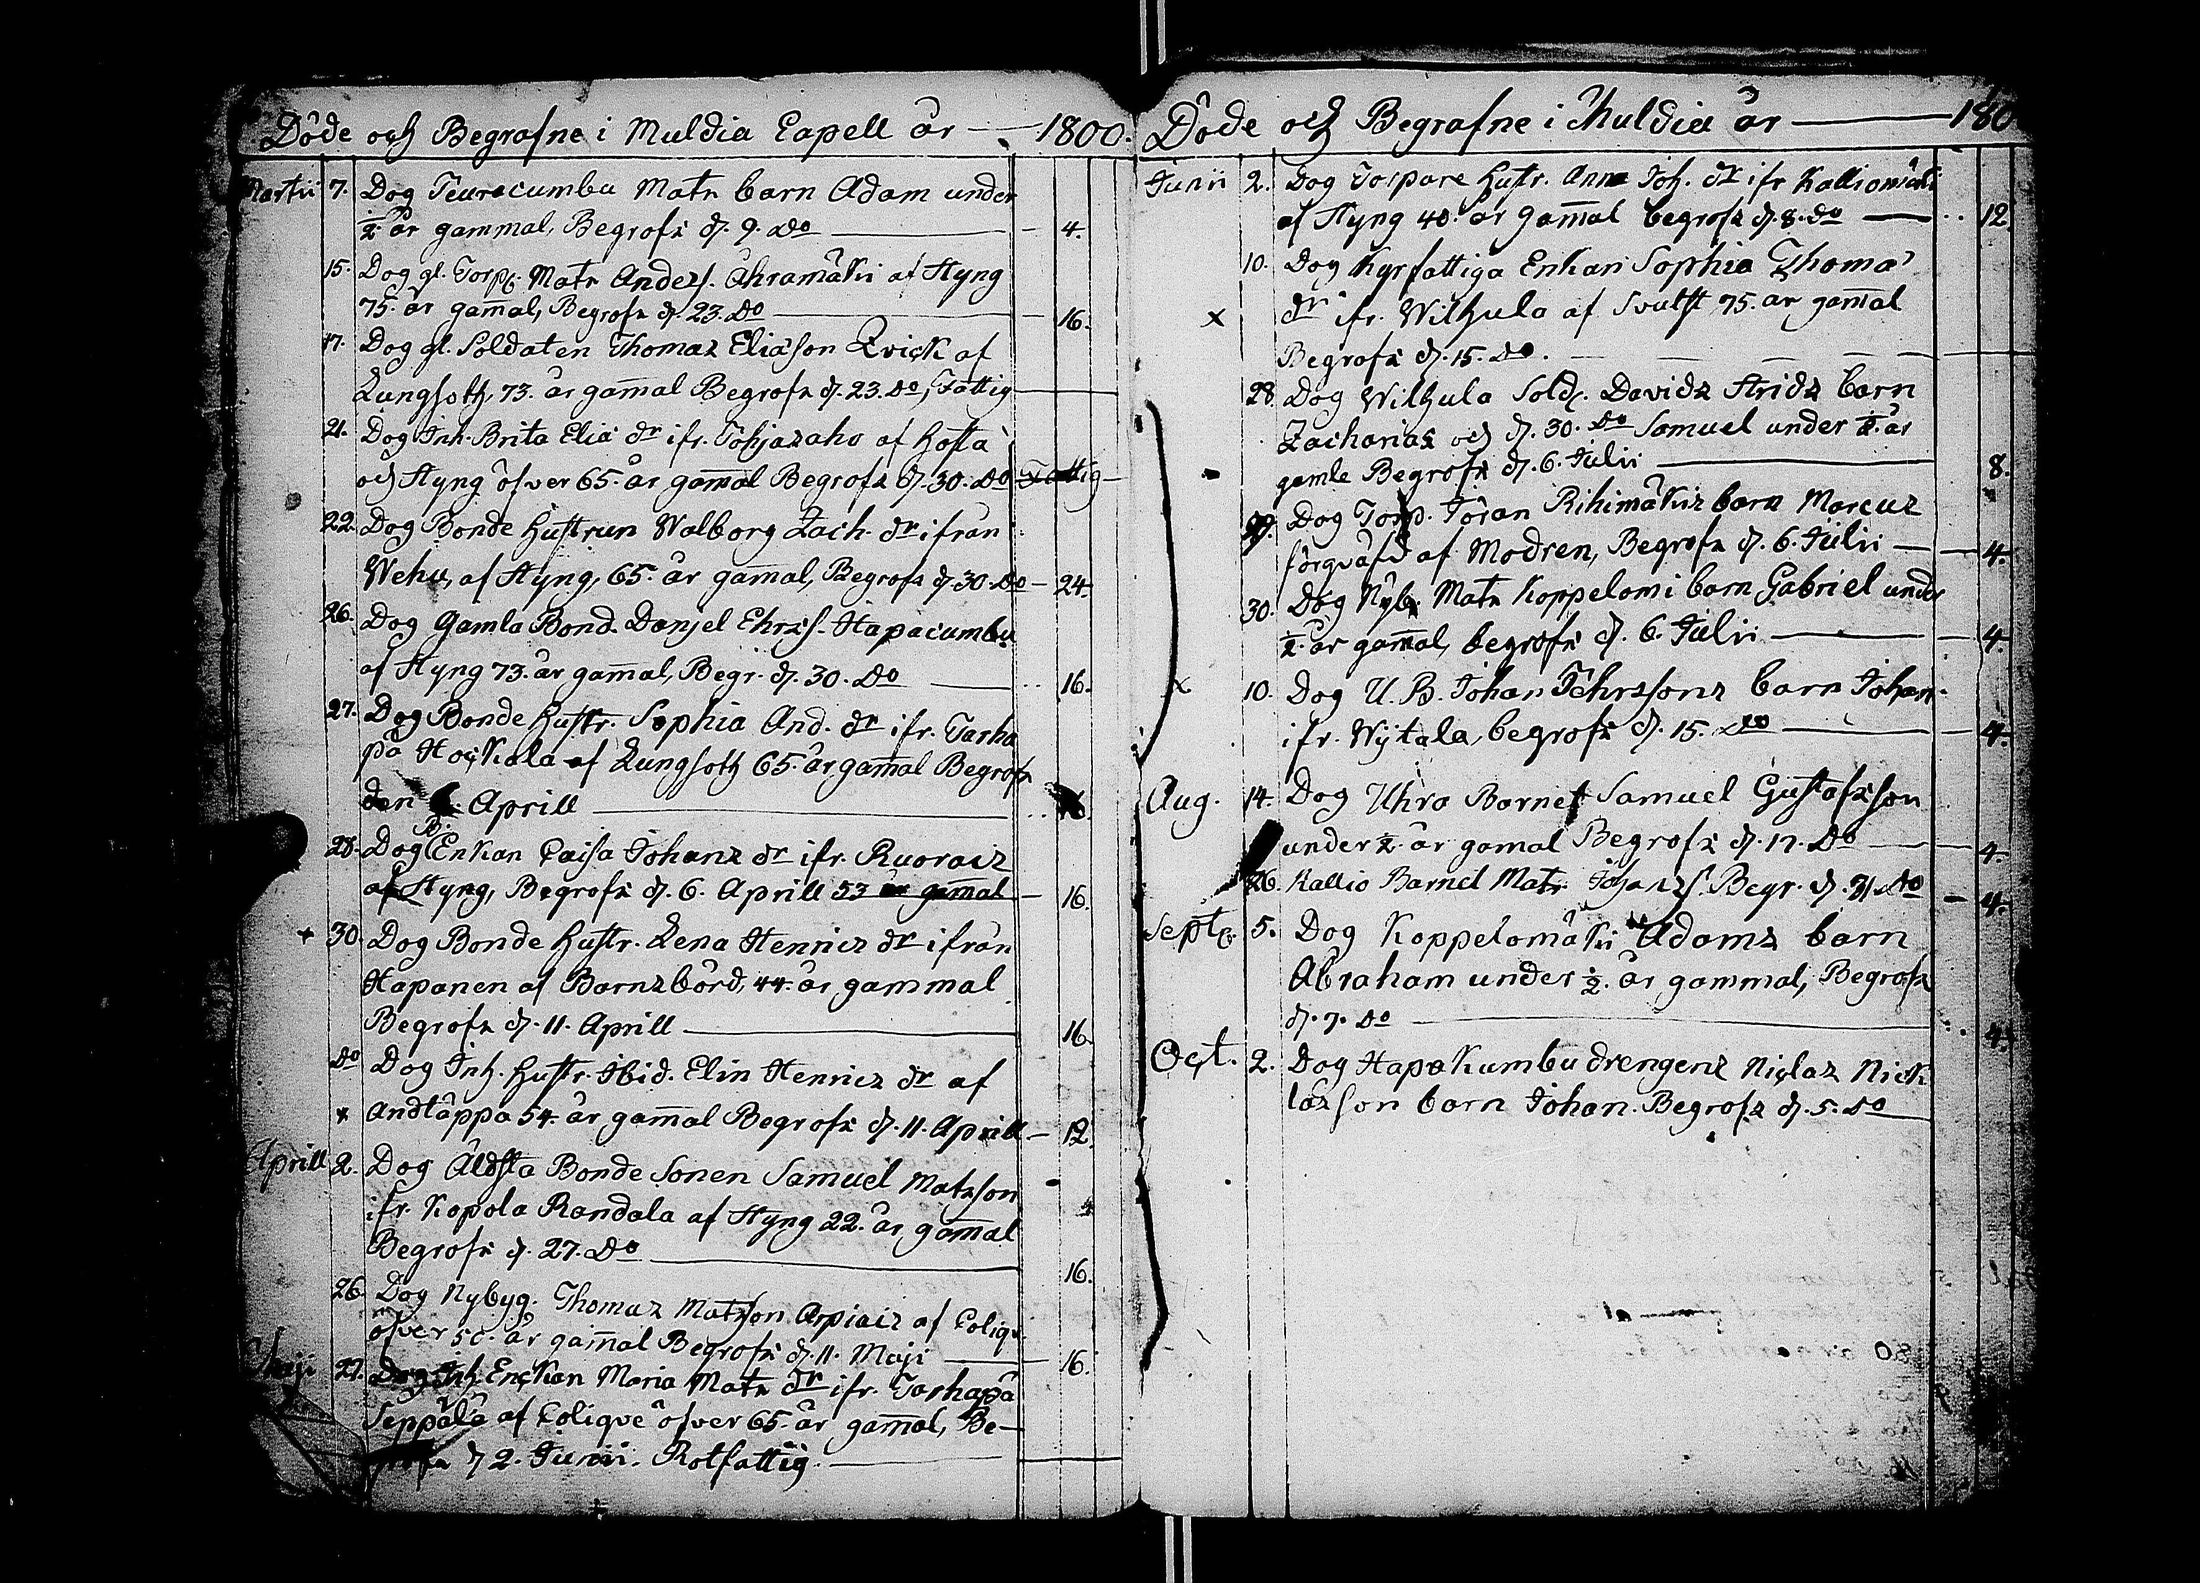 Döde och Begrafne i Muldia Capell år — 1800.
Martii 7. Dog Teuracumbu Mats barn Adam under
½ år gammal, Begrofs d. 9. do — 4.
15. Dog gl. Torp. Mats Anders. Ahramäki af Hyng
75. år gam̄al, Begrofs d. 23. do — 16.
17. Dog gl. Soldaten Thomas Eliæson Qvick af
Lungsoth, 73. år gam̄al Begrofs d. 23. do, Fattig
21. Dog Inh. Brita Eliæ dr ifr. Pohjasaho af
och Hyng öfver 65. år gam̄al Begrofs d. 30. do Fattig
22. Dog Bonde hustrun Walborg Zach. dr ifrån
Wehu, af Hyng, 65. år gam̄al, Begrofs d. 30. do — 24.
26. Dog Gamla Bond. Danjel Ehrss. Hapacumbu
af Hyng 73. år gam̄al, Begr. d. 30. do — 16.
27. Dog Bonde hustr. Sophia And. dr ifr. Tarha
på Hockala af Lungsoth 65. år gam̄al Begrofs
den 6. Aprill — 16.
28. Dog B. Enkan Caisa Johans dr ifr. Ruorais
af Hyng, Begrofs d. 6. Aprill 53 år gam̄al — 16.
+ 30. Dog Bonde hustr. Lena Henrics dr ifrån
Hapanen af Barnsbörd, 44. år gammal
Begrofs d. 11. Aprill — 16.
do Dog Inh. hustr. Ibid. Elin Henrics dr af
x Andtäppa 54. år gam̄al Begrofs d. 11. Aprill — 12.
Aprill 2. Dog Äldsta Bonde Sonen Samuel Matsson
ifr. Kopola Randala af Hyng 22. år gam̄al
Begrofs d. 27. do — 16.
26. Dog Nybyg. Thomas Matsson Arpiais af Colique
öfver 50. år gam̄al Begrofs d. 11. Maji — 16.
Maji 27. Dog Inh. Enckan Maria Mats dr ifr. Tarhapä
Seppälä af Colique öfver 65. år gam̄al, Be-
grofs d 2. Junii. Rotfattig.
Döde och Begrafne i Muldia år — 180
Junii 2. Dog Torpare hustr. Anna Joh. dr ifr Kalliomäki
af Hyng 40. år gam̄al begrofs d. 8. do — 12.
10. Dog Kyrfattiga Enkan Sophia Thomæ
x dr ifr. Wilhula af Svulst 75. år gam̄al
Begrofs d. 15. do.
28. Dog Wilhula Sold. Davids Strids barn
Zacharias och d. 30. do Samuel under ½ år
gamle Begrofs d. 6. Julii — 8.
29. Dog Torp. Jöran Rihimäkis barn Marcus
förqväfd af Modren, Begrofs d. 6. Julii — 4.
30. Dog Nyb. Mats Koppelomi barn Gabriel under
½ år gam̄al, begrofs d. 6. Julii — 4.
x 10. Dog U. B. Johan Pehrssons barn Johan
ifr. Wytala, begrofs d. 15. do — 4.
Aug. 14. Dog Uhro Barnet Samuel Gustafsson
under ½ år gamal Begrofs d. 17. do — 4.
26. Kallio Barnet Mats Johanss. Begr. d. 31. do — 4.
Sept. 5. Dog Koppelomäki Adams barn
Abraham under ½ år gammal, Begrofs
d. 7. do — 4.
Oct. 2. Dog Hapakumbu drengens Niclas Nick
lasson barn Johan. Begrofs d. 5. do